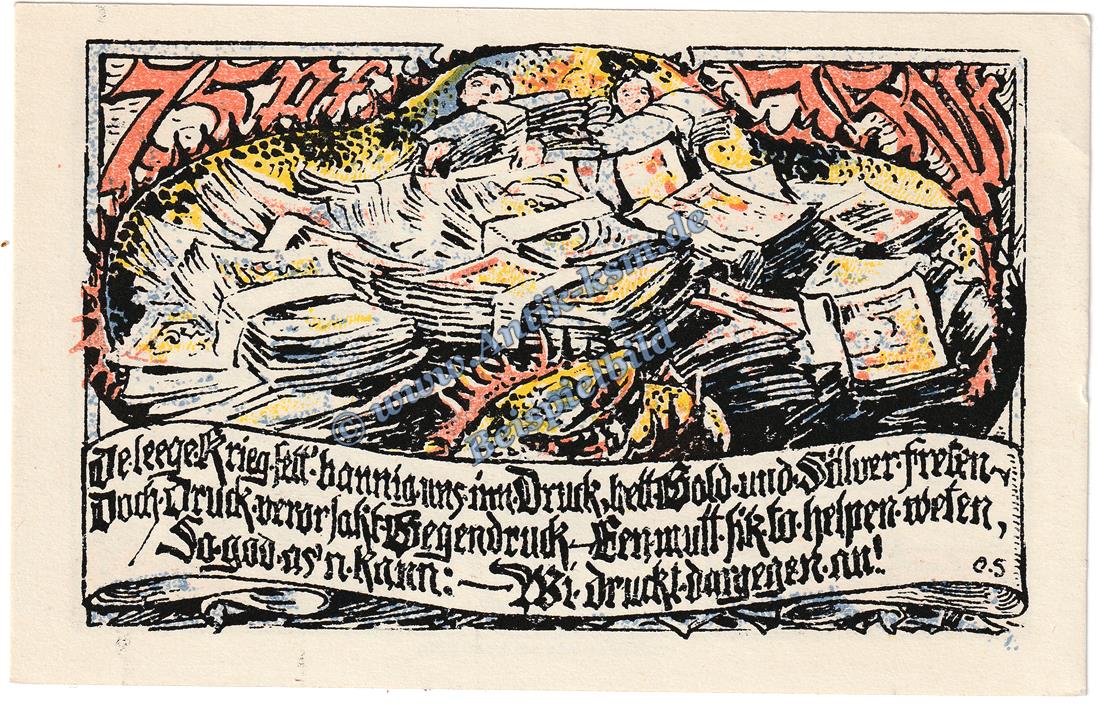 75 Pf
75 Pf
© www.Antik-ksm.de
Beispielbild
De leege Krieg sett bannig uns inn Druck, hett Gold und Sülver freten
Doch Druck verorsakt Gegendruck – Een mutt sik to helpen weten,
So god as'n kann: – Wi druckt dargegen an!
O.S